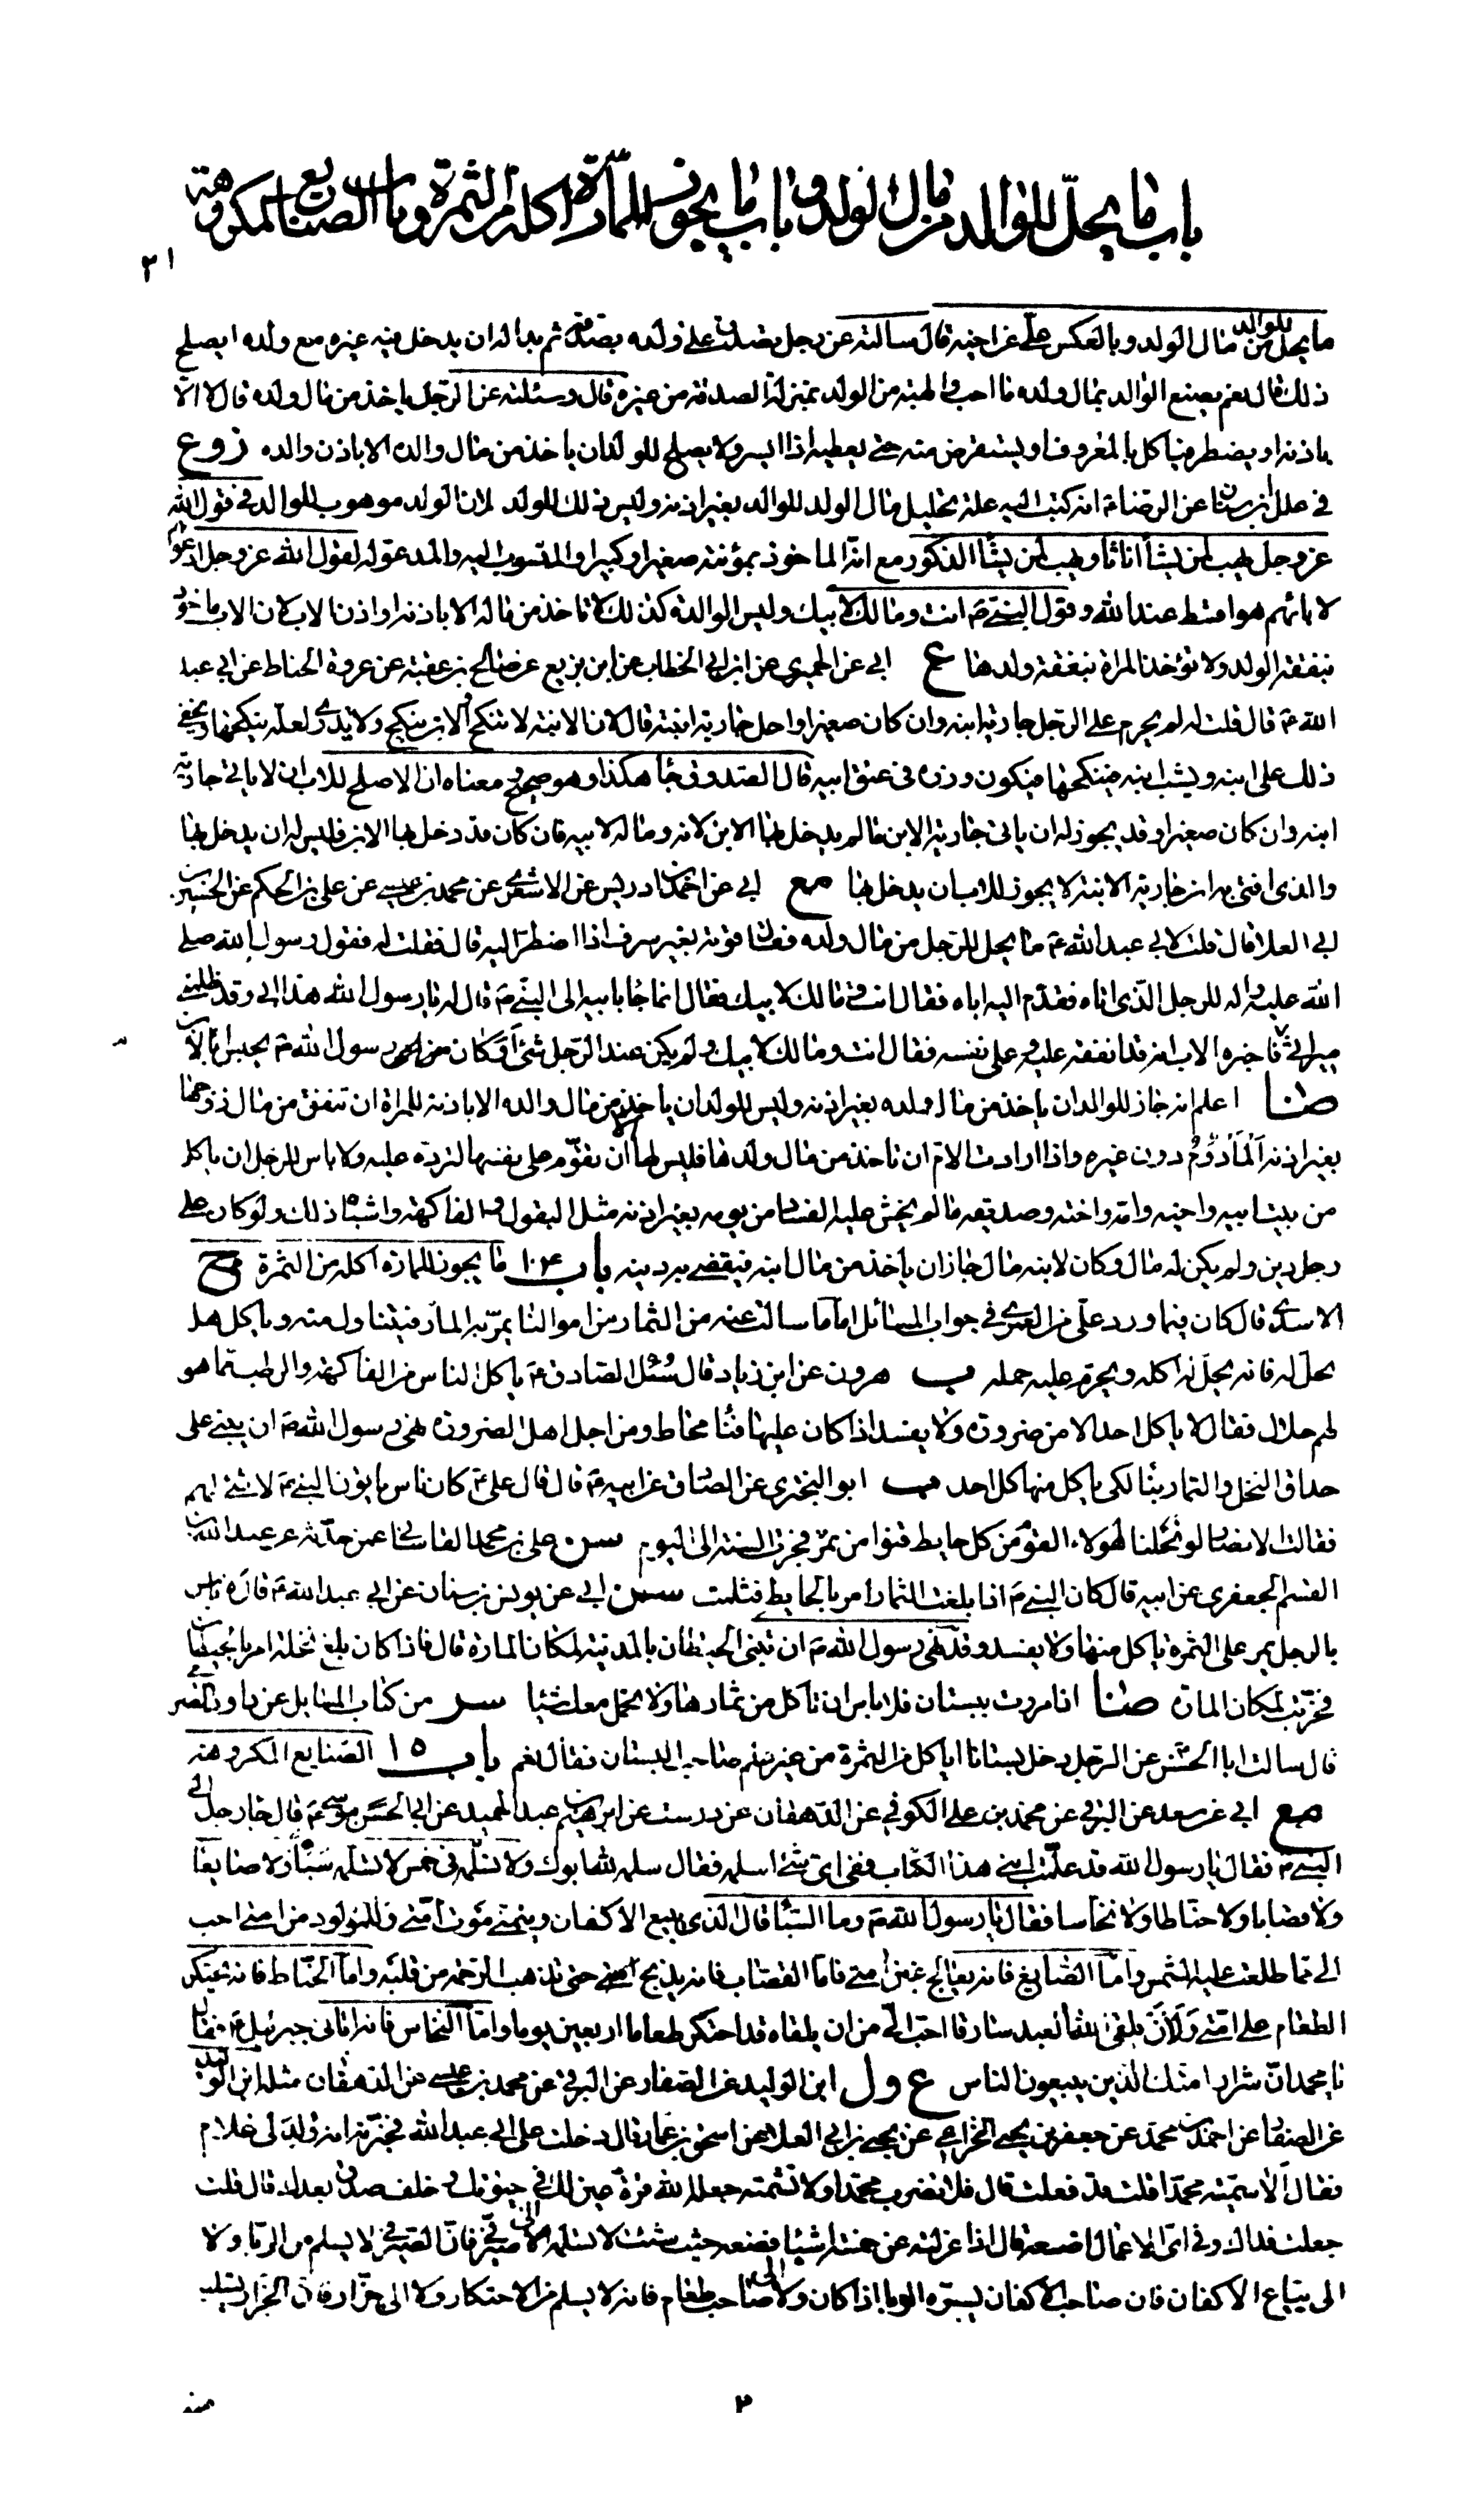 باب ما يحلّ للوالد من مال الولد وباب ما يجوز للمارّة اكله من الثمرة وباب الصنايع المكروهة
٢١
ما يحل للوالد من مال الولد وبالعكس علّي عن اخيه قال سالته عن رجل تصدّق على ولده بصدقة ثم بدا له ان يدخل فيه غيره مع ولده ايصلح
ذلك قال نعم يصنع الوالد بمال ولده ما احب والهبة من الولد بمنزلة الصدقة من غيره قال وسئلته عن الرّجل ياخذ من مال ولده قال لا الّا
باذنه او يضطر فياكل بالمعروف او يستقرض منه حتى يعطيه اذا ايسر ولا يصلح للولد ان ياخذ من مال والده الا باذن والده ن و ع
في علل ابن سنان عن الرضا ع انه كتب اليه علة تحليل مال الولد للوالد بغير اذنه وليس ذلك للولد لان الولد موهوب للوالد في قول الله
عز وجل يهب لمن يشأ اناثا ويهب لمن يشأ الذكور مع انّه الماخوذ بمؤنته صغيرا وكبيرا والمنسوب اليه والمدعو له لقول الله عز وجل ادعوهم
لابائهم هو اقسط عند الله وقول النبيّ ص انت ومالك لابيك وليس الوالدة كذلك لا تاخذ من ماله الا باذنه او اذن الاب لان الاب ماخوذ
بنفقة الولد ولا تؤخذ المراة بنفقة ولدها ع ابي عن الحميري عن ابن ابي الخطاب عن ابن بزيع عن صالح بن عقبة عن عروة الحناط عن ابي عبد
الله ع قال قلت له لم يحرم على الرّجل جارية ابنه وان كان صغيرا واحل جارية ابنته قال لان الابنة لا تنكح والابن ينكح ولا يدري لعله ينكحها ويخفي
ذلك على ابنه ويشب ابنه فينكحها فيكون وزره في عنق ابيه قال الصدوق جا هكذا وهو صحيح ومعناه ان الاصلح للاب ان لا ياتي جارية
ابنه وان كان صغيرا وقد يجوز له ان ياتي جارية الابن ما لم يدخل بها الابن لانه وماله لابيه فان كان قد دخل بها الابن فليس له ان يدخل بها
والذي افتي به ان جارية الابنة لا يجوز للاب ان يدخل بها مع ابي عن احمد بن ادريس عن الاشعري عن محمد بن عيسى عن علي بن الحكم عن الحسين بن
ابي العلا قال قلت لابي عبد الله ع ما يحل للرّجل من مال ولده فقال قوته بغير سرف اذا اضطرّ اليه قال فقلت له فقول رسول الله صلى
الله عليه واله للرجل الذّي اتاه فقدّم اليه اباه فقال انت ومالك لابيك فقال انما جا بابيه الى النبيّ ص قال له يا رسول الله هذا ابي وقد ظلمني
ميراثي فاخبره الاب انه قد انفقه عليه وعلى نفسه فقال انت ومالك لابيك ولم يكن عند الرّجل شئ افكان رسول الله ص يحبس ابا لابن
ضا اعلم انه جاز للوالد ان ياخذ من مال ولده بغير اذنه وليس للولد ان ياخذ من مال والده الا باذنه للمراة ان تنفق من مال زوجها
بغير اذنه المأدوم دون غيره واذا ارادت الام ان تاخذ من مال ولدها فليس لها الا ان تقوّم على نفسها لتردّه عليه ولا باس للرجل ان ياكل
من بيت ابيه واخيه وامّه واخته وصديقه ما لم يخش عليه الفساد من يومه بغير اذنه مثل البقول والفاكهة واشباه ذلك ولو كان على
رجل دين ولم يكن له مال وكان لابنه مال جاز ان ياخذ من مال ابنه فيقضي به دينه باب ١٠٤ ما يجوز للمارة اكله من الثمرة ج
الاسدي قال كان فيما ورد علّي من العمري في جواب المسائل اما ما سالت عنه من الثمار من اموالنا يمرّ به المارّ فيتناول منه وياكل هل
يحل له فانه يحلّ له اكله ويحرم عليه حمله ب هرون عن ابن زياد قال سُئل الصادق ع ياكل الناس من الفاكهة والرطب مما هو
لهم حلال فقال لا ياكل احد الا من ضرورة ولا يفسد اذا كان عليها فنا محاط ومن اجل اهل الضرورة نهى رسول الله ص ان يبنى على
حدايق النخل والثمار بنا لكي ياكل منها كل احد ب ابو البختري عن الصّادق عن ابيه ع قال قال علي ع كان ناس ياتون النبي ص لا شئ لهم
فقالت الانصار لو نحلنا لهولاء القوم من كل حايط قنوا من تمر فجرت السنة الى اليوم سن علي بن محمد القاساني عمن حدّثه عن عبد الله بن
القسم الجعفري عن ابيه قال كان النبي ص اذا بلغت الثمار امر بالحايط فثلمت سن ابي عن يونس بن سنان عن ابي عبد الله ع قال لا باس
بالرجل يمر على الثمرة ياكل منها ولا يفسد وقد نهى رسول الله ص ان تبنى الحيطان بالمدينة لمكان المارة قال فاذا كان بلغ نخله امر بالحيطان
فخرّبت لمكان المارة ضا اذا مررت ببستان فلا باس ان تاكل من ثمارها ولا تحمل معك شيئا سر من كتاب المسايل عن داود الصرمي
قال سالت ابا الحسن عن الرّجل دخل بستانا اياكل من الثمرة من غير علم صاحب البستان فقال نعم باب ١٥ الصّنايع المكروهة
مع ابي عن سعد عن البرقي عن محمد بن علي الكوفي عن الدّهقان عن درست عن ابرهيم بن عبد الحميد عن ابي الحسن موسى ع قال جا رجل الى
النبي ص فقال يا رسول الله قد علّمت ابني هذا الكتاب ففي اي شئ اسلمه فقال سلمه لله ابوك ولا تسلّمه في خمس لا تسلمه سبّاءً ولا صايغا
ولا قصابا ولا حناطا ولا نخاسا فقال يا رسول الله ص وما السّبّا قال الذي يبيع الاكفان ويتمنّى موت امّتي وللمولود من امتي احب
الي مما طلعت عليه الشمس وامّا الصّايغ فانه يعالج غبن امتي فامّا القصاب فانه يذبح حتى تذهب الرّحمة من قلبه وامّا الحنّاط فانه يحتكر
الطعام على امّتي ولَأن يلقى الله العبد سارقا احبّ اليّ من ان يلقاه قد احتكر طعاما اربعين يوما وامّا النّخاس فانه اتاني جبرئيل ع فقال
يا محمد انّ شرار امتك الذين يبيعون الناس ع و ل ابن الوليد عن الصفار عن البرقي عن محمد بن عيسى عن الدهقان مثله ابن الوليد
عن الصفار عن احمد بن محمد عن جعفر بن يحيى الخزاعي عن يحيى بن ابي العلا عن اسحق بن عمار قال دخلت على ابي عبد الله فخبّرته انه ولد لي غلام
فقال الا سمّيته محمّدا قلت قد فعلت قال فلا تضرب محمّدا ولا تشتمه جعله الله قرّة عين لك في حيوتك وخلف صدق بعدك قال قلت
جعلت فداك وفي اي الاعمال اضعه قال اذا عزلته عن خمسة اشيا فضعه حيث شئت لا تسلمه الى صيرفي فان الصيرفي لا يسلم من الربا ولا
الى بيّاع الاكفان فان صاحب الاكفان يسرّه الوبا اذا كان ولا الى صاحب طعام فانه لا يسلم من الاحتكار ولا الى جزّار فان الجزّار تسلب
٢
منه